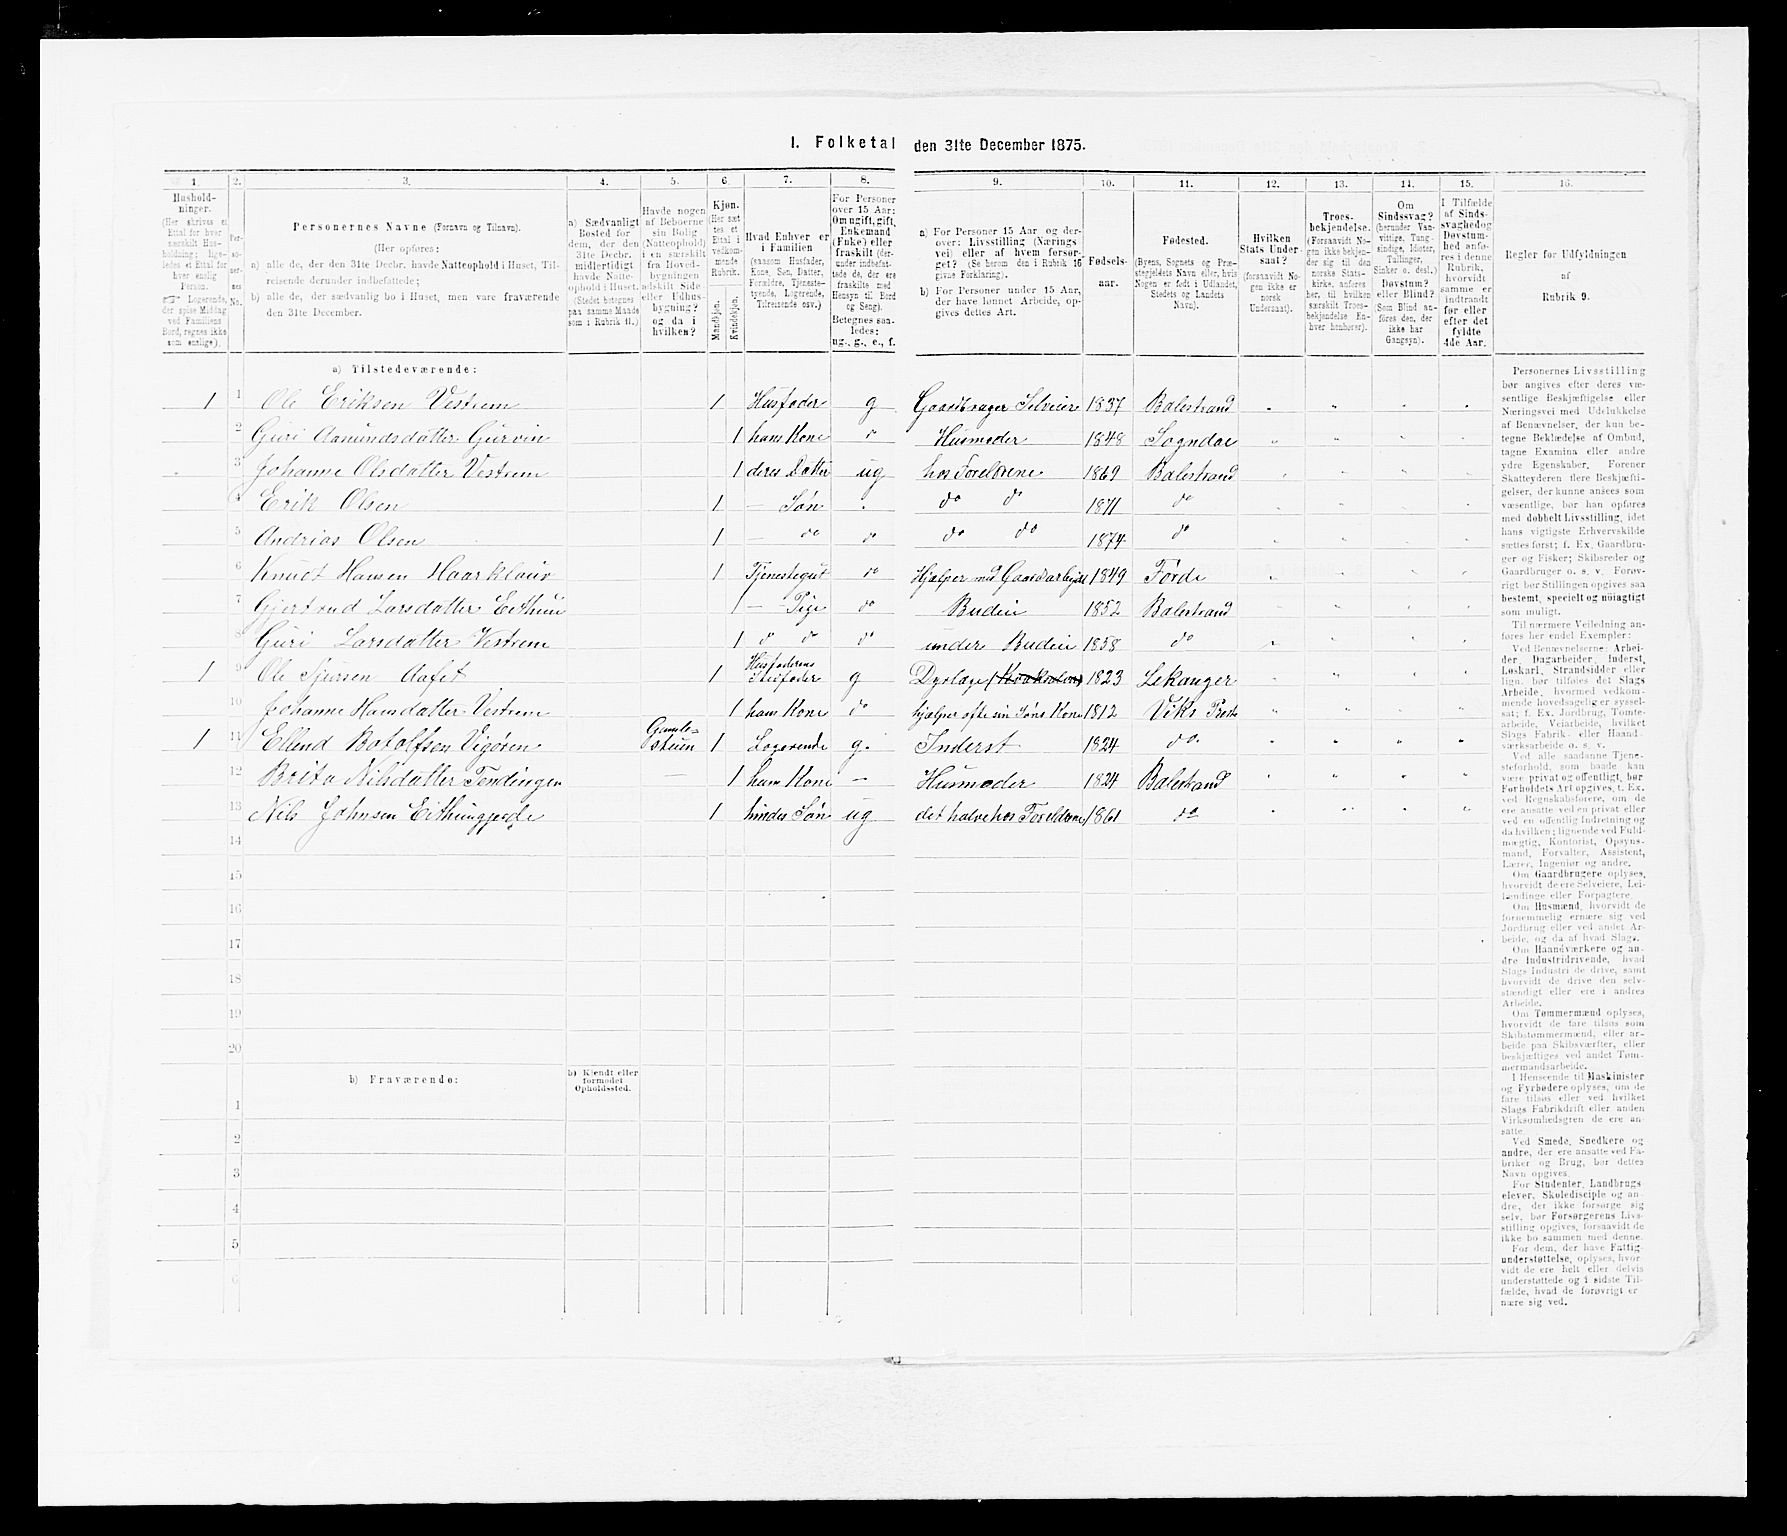 1. Folketal den 31te December 1875.
1. 2. 3. 4. 5. 6. 7. 8. 9. 10. 11. 12. 13. 14. 15. 16.
Husholdninger.
(Her skrives et
Ettal for hver
særskilt Husholdning; ligeledes et Ettal for
hver enslig
Person.
Logerende,
der spise Middag
ved Familiens
Bord, regnes ikke
som enslige).
Personernes No.
Personernes Navne (Fornavn og Tilnavn).
(Her opføres:
a) alle de, der den 31te Decbr. havde Natteophold i Huset, Tilreisende derunder indbefattede;
b) alle de, der sædvanlig bo i Huset, men vare fraværende
den 31te December.
a) Sædvanligt
Bosted for
dem, der den
31te Decbr.
midlertidigt
havde Natteophold i Huset.
(Stedet betegnes
paa samme Maade
som i Rubrik 11.)
Havde nogen
af Beboerne
sin Bolig
(Natteophold)
i en særskilt
fra Hovedbygningen
adskilt Side
eller Udhusbygning?
og da i
hvilken?
Kjøn.
(Her sættes et
Ettal i
vedkommende
Rubrik.
Mandkjøn.
Kvindekjøn.
Hvad Enhver er
i Familien
(saasom Husfader,
Kone, Søn, Datter,
Forældre, Tjenestetyende, Logerende,
Tilreisende osv.)
For Personer
over 15 Aar:
Om ugift, gift,
Enkemand
(Enke) eller
fraskilt (derunder indbefattede de, der ere
fraskilte med
Hensyn til Bord
og Seng).
Betegnes saaledes:
ug., g., e., f.
a) For Personer 15 Aar og derover: Livsstilling (Næringsvei) eller af hvem forsørget? (Se herom den i Rubrik 16
givne Forklaring).
b) For Personer under 15 Aar,
der have lønnet Arbeide, opgives dettes Art.
Fødselsaar.
Fødested.
(Byens, Sognets og Præstegjeldets Navn eller, hvis
Nogen er født i Udlandet,
Stedets og Landets
Navn).
Hvilken
Stats Undersaat?
(forsaavidt Nogen ikke er
norsk
Undersaat).
Troesbekjendelse.
(Forsaavidt Nogen ikke bekjender sig til den
norske Statskirke, anføres
her, til hvilken
særskilt Troesbekjendelse Enhver henhører).
Om
Sindssvag?
(herunder Vanvittige, Tungsindige, Idioter,
Tullinger,
Sinker o. desl.)
Døvstum?
eller Blind?
(Som Blind anføres den, der
ikke har
Gangsyn).
I Tilfælde
af Sindssvaghed og
Døvstumhed anføres i denne
Rubrik,
hvorvidt
samme er
indtraadt
før eller
efter det
fyldte
4de Aar.
Regler for Udfyldningen
af
Rubrik 9.
a) Tilstedeværende:
1 1 Ole Eriksen Vestrem 1 Husfader g Gaardbruger Selveier 1837 Balestrand
2 Guri Aamundsdatter Gurvin 1 hans Kone do Husmoder 1848 Sogndal
3 Johanne Olsdatter Vestrem 1 deres Datter ug hos Foreldrene 1869 Balestrand
4 Erik Olsen 1 — Søn do do 1871 do
5 Andrias Olsen 1 — do do do do 1874 do
6 Knudt Hansen Haarklauv 1 Tjenestegut do Hjælper med Gaardsarbejde 1849 Førde
7 Gjertrud Larsdatter Eithun 1 — Pige do Budeie 1852 Balestrand
8 Guri Larsdatter Vestrem 1 do do do under Budeie 1858 do
1 9 Ole Sjursen Aafet 1 Husfaderens Stedfader g Dyrlæge 1823 Lekanger
10 Johanne Hansdatter Vestrem 1 hans Kone do hjælper ofte sin Søns Kone 1812 Viks Præst
1 11 Ellend Botolfsen Vigøren Gamlestuen 1 Logerende g. Inderst 1824 do
12 Brita Nilsdatter Tendingen — 1 hans Kone — Husmoder 1824 Balestrand
13 Nils Johnsen Eithungjerde 1 hindes Søn ug det halve hos Foreldrene 1861 do
14
15
16
17
18
19
20
b) Fraværende:
b) Kjendt eller
formodet
Opholdssted.
1
2
3
4
5
6
Personernes Livsstilling
bør angives efter deres væsentlige Beskjæftigelse eller
Næringsvei med Udelukkelse
af Benævnelser, der kun betegne Beklædelse af Ombud,
tagne Examina eller andre
ydre Egenskaber. Forener
Skatteyderen flere Beskjæftigelser, der kunne ansees som
væsentlige, bør han opføres
med dobbelt Livsstilling, idet
hans vigtigste Erhvervskilde
sættes først; f. Ex. Gaardbruger og Fisker; Skibsreder og
Gaardbruger o. s. v. Forøvrigt bør Stillingen opgives saa
bestemt, specielt og nøiagtigt
som muligt.
Til nærmere Veiledning anføres her endel Exempler:
Ved Benævnelserne: Arbeider, Dagarbeider, Inderst,
Løskarl, Strandsidder eller
lign. bør tilføies det Slags
Arbeide, hvormed vedkommende hovedsagelig er sysselsat; f. Ex. Jordbrug, Tømtearbeide, Veiarbeide, hvilket
Slags Fabrik- eller Haandværksarbeide o. s. v.
Ved alle saadanne Tjenesteforhold, som baade kan
være privat og offentligt, bør
Forholdets Art opgives, t. Ex.
ved Regnskabsførere, om de
ere ansatte ved en privat eller
ved en offentlig Indretning og
da hvilken; lignende ved Fuldmægtig, Kontorist, Opsynsmand, Forvalter, Assistent,
Lærer, Ingeniør og andre.
Om Gaardbrugere oplyses,
hvorvidt de ere Selveiere, Leilændinge eller Forpagtere.
Om Husmænd, hvorvidt de
fornemmelig ernære sig ved
Jordbrug eller ved andet Arbeide, og da af hvad Slags.
Om Haandværkere og andre Industridrivende, hvad
Slags Industri de drive, samt
hvorvidt de drive den selvstændigt eller ere i andres
Arbeide.
Om Tømmermænd oplyses,
hvorvidt de fare tilsøs som
Skibstømmermænd, eller arbeide paa Skibsværfter, eller
beskjæftiges ved andet Tømmermandsarbeide.
I Henseende til Maskinister
og Fyrbødere oplyses, om de
fare tilsøs eller ved hvilket
Slags Fabrikdrift eller anden
Virksomhedsgren de ere ansatte.
Ved Smede, Snedkere og
andre, der ere ansatte ved Fabriker og Brug, bør dettes
Navn opgives.
For Studenter, Landbrugselever, Skoledisciple og andre, der ikke forsørge sig
selv, bør Forsørgerens Livsstilling opgives, forsaavidt de
ikke bo sammen med denne.
For dem, der have Fattigunderstøttelse, oplyses, hvorvidt de ere helt eller delvis
understøttede og i sidste Tilfælde, hvad de forøvrigt ernære sig ved.